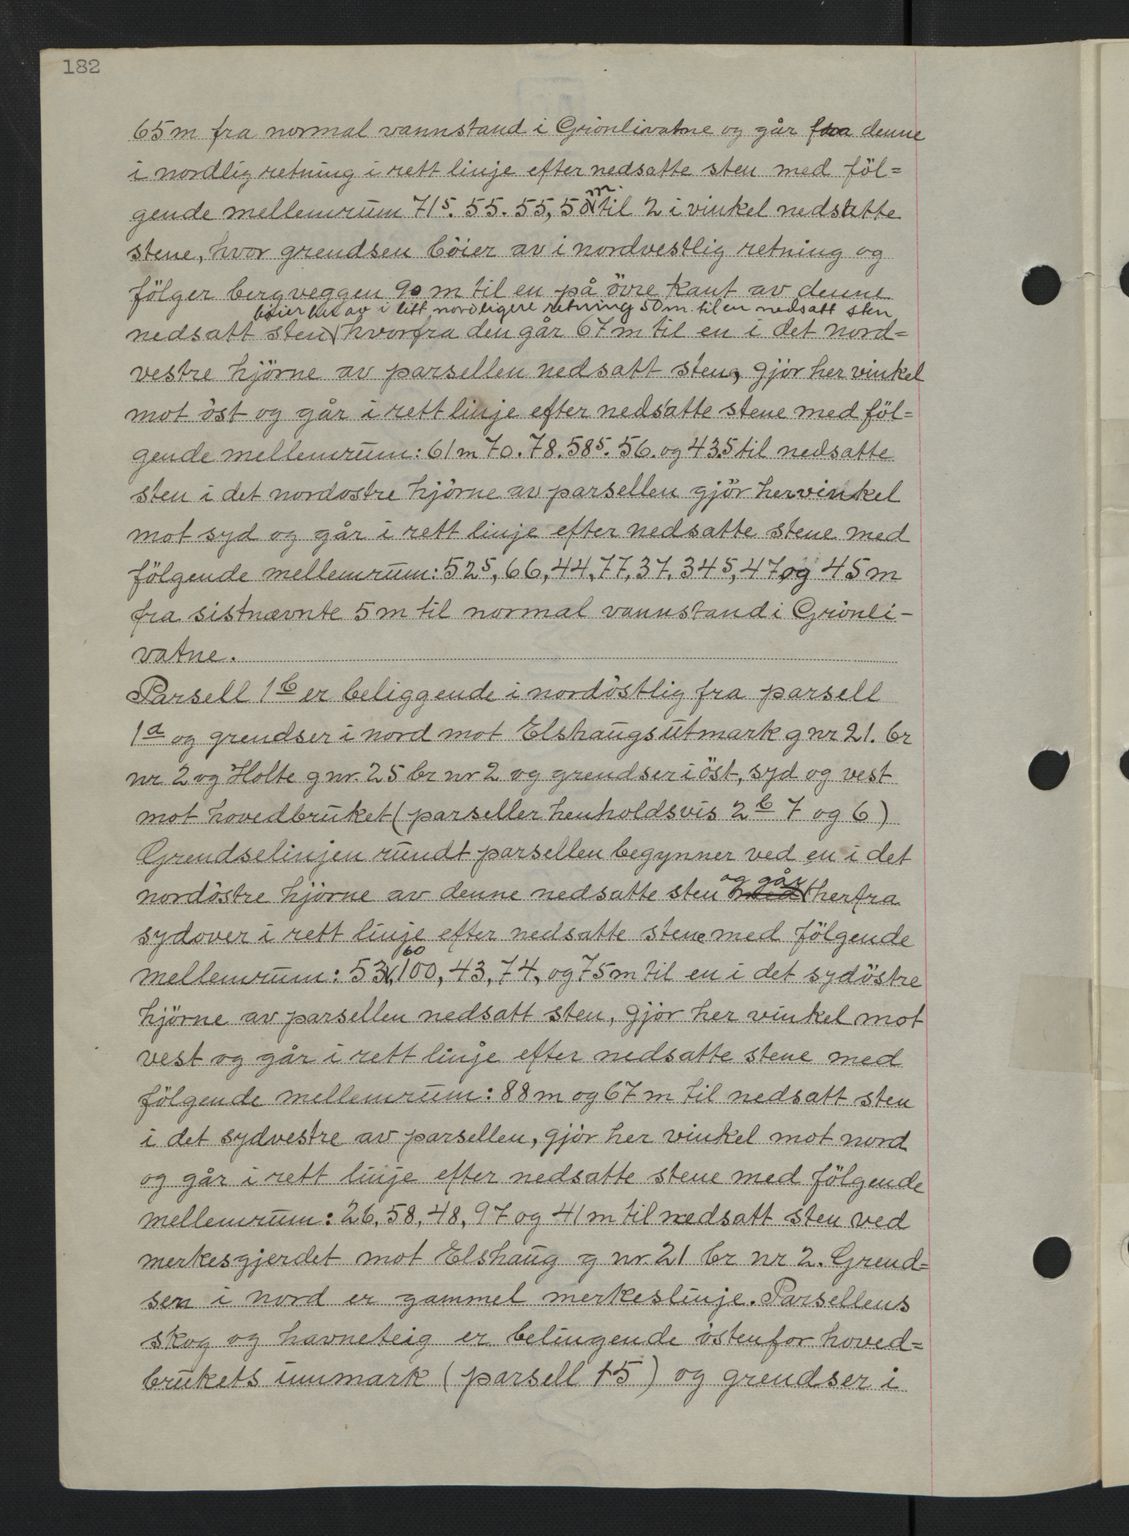 182
65 m fra normal vannstand i Grönlivatne og går fra denne
i nordlig retning i rett linje efter nedsatte sten med föl=
gende mellemrum 71⁵. 55. 55, 50 m til 2 i vinkel nedsatte
stene, hvor grendsen böier av i nordvestlig retning og
fölger bergveggen 90 m til en på övre kant av denne
böier litt av i litt nordligere retning 50 m til en nedsatt sten
nedsatt sten hvorfra den går 67 m til en i det nord=
vestre hjörne av parsellen nedsatt sten, gjör her vinkel
mot öst og går i rett linje efter nedsatte stene med föl=
gende mellemrum: 61 m 70. 78. 58⁵. 56. og 43.5 til nedsatte
sten i det nordostre hjörne av parsellen gjör her vinkel
mot syd og går i rett linje efter nedsatte stene med
fölgende mellemrum: 52⁵, 66, 44, 77, 37, 34⁵, 47 og 45 m
fra sistnævnte 5 m til normal vannstand i Grönli-
vatne.
Parsell 1 b er beliggende i nordöstlig fra parsell
1 a og grendser i nord mot Elshaugsutmark g nr 21. br
nr 2 og Holte g nr. 25 br nr 2 og grendser i öst, syd og vest
mot hovedbruket (parseller henholdsvis 2 b 7 og 6)
Grendselinjen rundt parsellen begynner ved en i det
og går
nordöstre hjörne av denne nedsatte sten herfra
sydover i rett linje efter nedsatte stene med fölgende
60
mellemrum: 53, 100, 43, 74, og 75 m til en i det sydöstre
hjörne av parsellen nedsatt sten, gjör her vinkel mot
vest og går i rett linje efter nedsatte stene med
fölgende mellemrum: 88 m og 67 m til nedsatt sten
i det sydvestre av parsellen, gjör her vinkel mot nord
og går i rett linje efter nedsatte stene med fölgende
mellemrum: 26, 58, 48, 97 og 41 m til nedsatt sten ved
merkesgjerdet mot Elshaug g nr 21 br nr 2. Grend=
sen i nord er gammel merkeslinje. Parsellens
skog og havneteig er belingende östenfor hoved=
brukets innmark (parsell 15) og grendser i